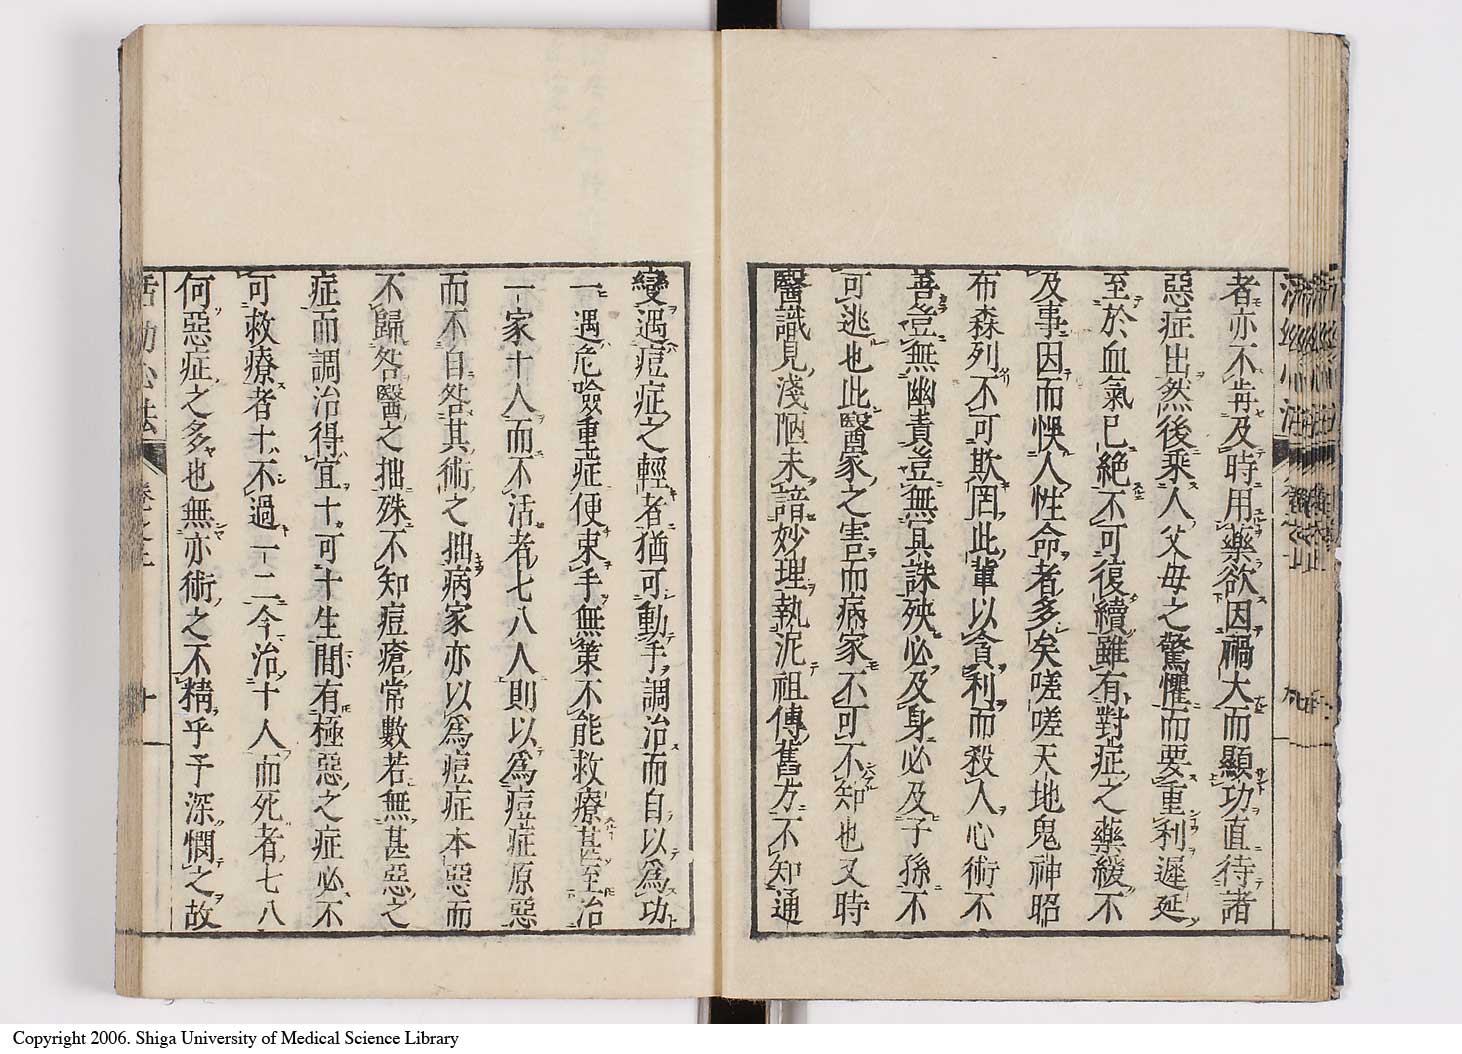 者亦不肯及時用藥欲因禍大而顯功直待諸
惡症出然後乘人父母之驚懼而要重利遲延
至於血氣已絕不可復續雖有對症之藥緩不
及事因而悞人性命者多矣嗟嗟天地鬼神昭
布森列不可欺罔此輩以貪利而殺人心術不
善豈無幽責豈無冥誅殃必及身必及子孫不
可逃也此醫家之害而病家不可不知也又時
醫識見淺陋未諳妙理執泥祖傳舊方不知通
變遇痘症之輕者猶可動手調治而自以為功
一遇危險重症便束手無策不能救療甚至治
一家十人而不活者七八人則以為痘症原惡
而不自咎其術之拙病家亦以為痘症本惡而
不歸咎醫之拙殊不知痘瘡常數若無甚惡之
症而調治得宜十可十生間有極惡之症必不
可救療者十不過一二今治十人而死者七八
何惡症之多也無亦術之不精乎予深憫之故
活幼心法
Copyright 2006. Shiga University of Medical Science Library